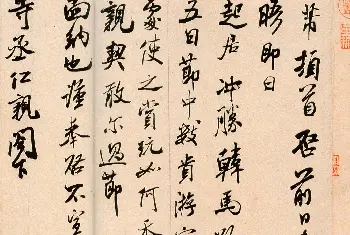 芾頓首啓前日
晤即日
起居沖勝韓馬
五日節中數貴游
處使之賞玩如何
親契敢尔過節
面納也謹奉啓不宣
寺丞仁親閣下